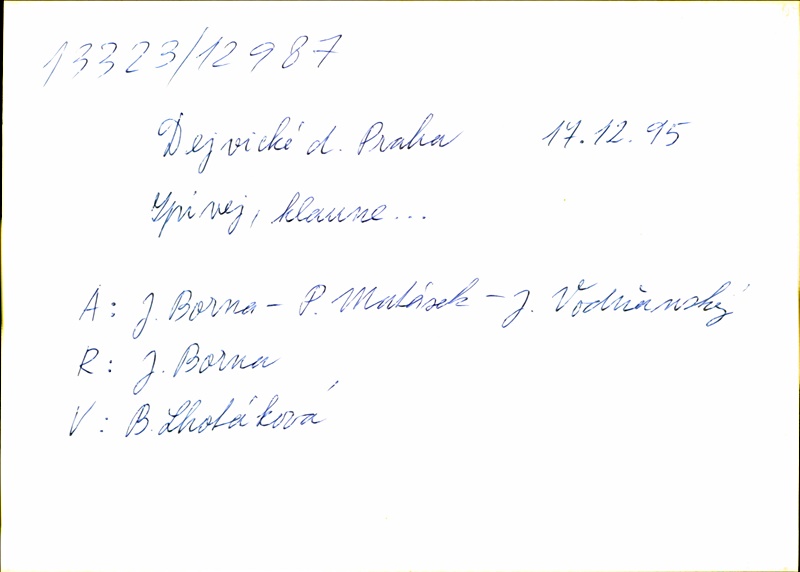 13323/12987
Dejvické d. Praha 17.12.95
Zpívej, klaune...
A: J. Borna - P. Matásek - J. Vodňanský
R: J. Borna
V: B. Lhotáková